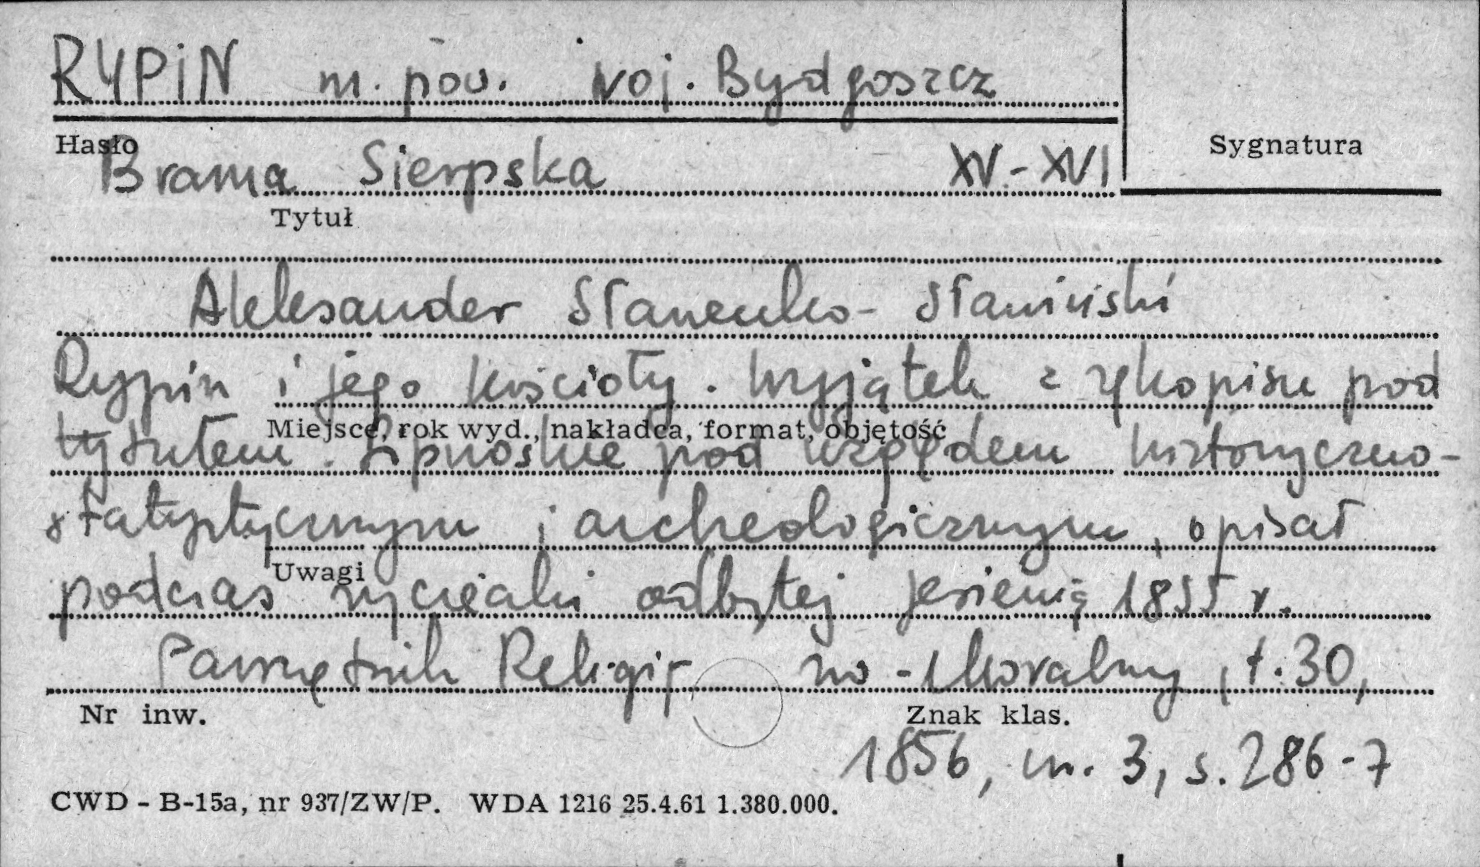 RYPIN m. pow. woj. Bydgoszcz
Hasło
Sygnatura
Brama Sierpska XV.-XVI
Tytuł
Aleksander Stanenko-
Rypin i jego kościoły. Wyjątek z rękopisu pod
Miejsce, rok wyd., nakładca, format, objętość
tytułem. Lipnoskie pod względem historyczno-
statystycznym i archeologicznym, opisał
Uwagi
podczas wycieczki odbytej jesienią 1855 r.
Pamiętnik Religijno-Moralny, t. 30,
Nr inw.
Znak klas.
1856, nr. 3, s. 286-7
CWD - B-15a, nr 937/ZW/P. WDA 1216 25.4.61 1.380.000.